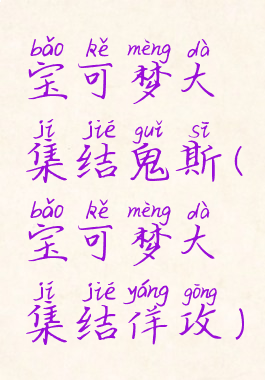 bǎo kě mèng dà
宝可梦大
jí jié guǐ sī
集结鬼斯(
bǎo kě mèng dà
宝可梦大
jí jié yáng gōng
集结佯攻)